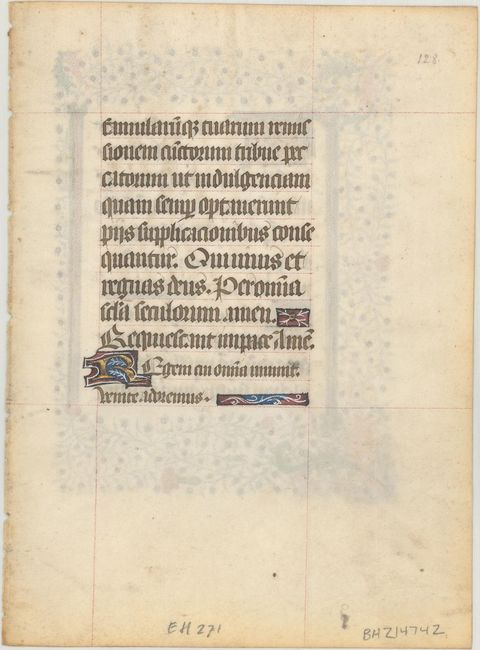 128
famularūq; tuarum remis
sionem cūctorum tribue pec
catorum ut indulgenciam
quam semp optauerunt
pijs supplicacionibus conse
quantur. Qui uiuis et
regnas deus. Per omīa
sclā seculorum. amen.
Requiescant in pace Amē.
Regem cui omīa uiuunt.
venite adoremus.
EH 271
BHZ14742